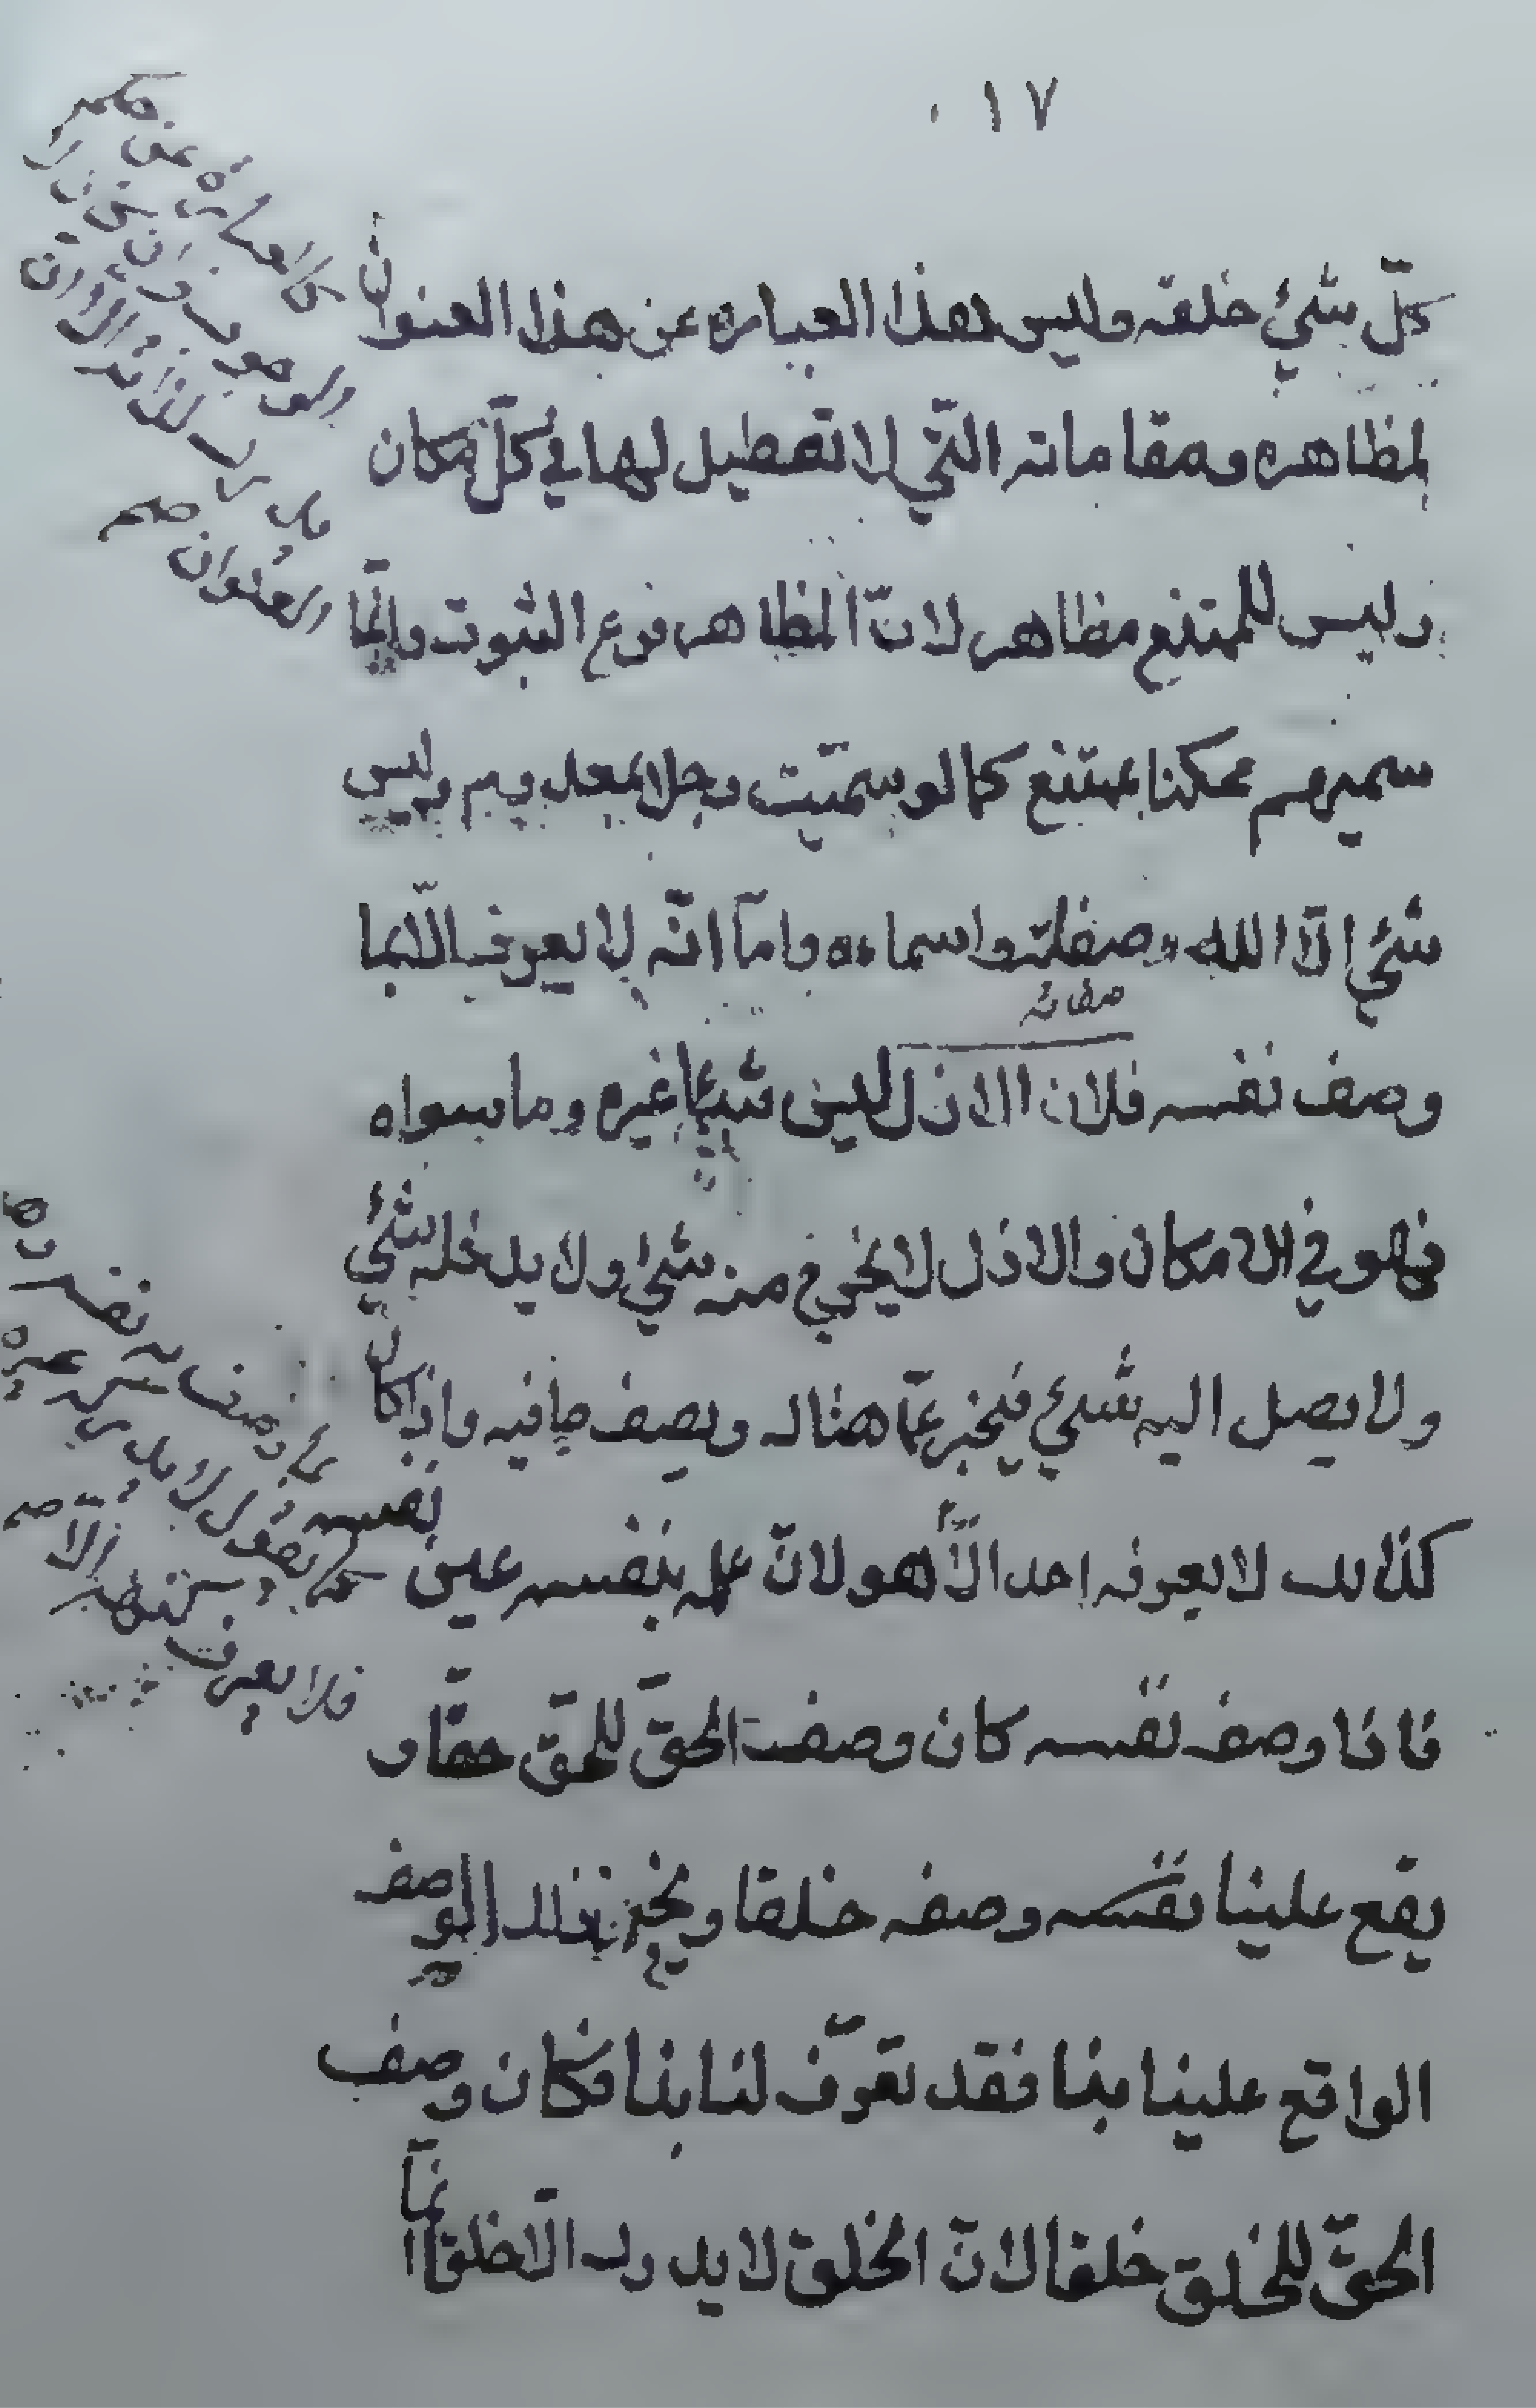 ١٧
كلّ شئ خلقه وليس هذا العباره عن هذا العنوان
لمظاهره ومقاماته التّي لا تعطيل لها في كلّ مكان
وليس للمتنع مظاهر لانّ المظاهر فرع الثبوت وانمّا
سميتم ممكنا بممتنع كما لو سمّيت رجلا بمعديهم وليس
شئ الّا اللّه وصفاته واسماءه وامّا انّه لا يعرف الّا بما
صفاته
وصف نفسه فلان الازل ليس شيئا غيره وما سواه
فهو في الامكان والازل لا يخرج منه شئ ولا يدخله شئ
ولا يصل اليه شئ فيخبر عمّا هنالك ويصف ما فيه واذا كان
كذالك لا يعرفه احد الّا هو لانّ علمه بنفسه عين نفسه
فاذا وصف نفسه كان وصف الحقّ للحقّ حقّا و
يقع علينا نفسه وصفه خلقا ويخبر بذلك الوصف
الواقع علينا بنا فقد تعرّف لنا بنا فكان وصف
الحقّ للخلق خلقا لانّ الخلق لا يدرك الّا خلقا انمّا
كالعبارة عن
والعنوان
بما وصف به نفسه
يقول لا يدركه غيره
فلا يعرف بكنهه الّا